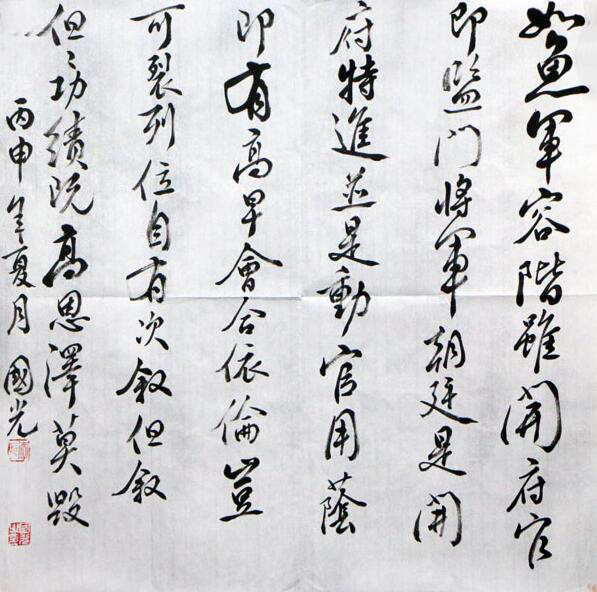 如魚軍容階雖開府官
即監門將軍朝廷是開
府特進並是動官用蔭
即有高早會合依倫豈
可裂列位自有次叙但叙
但〻功績既高恩澤莫毀
丙申年夏月國光